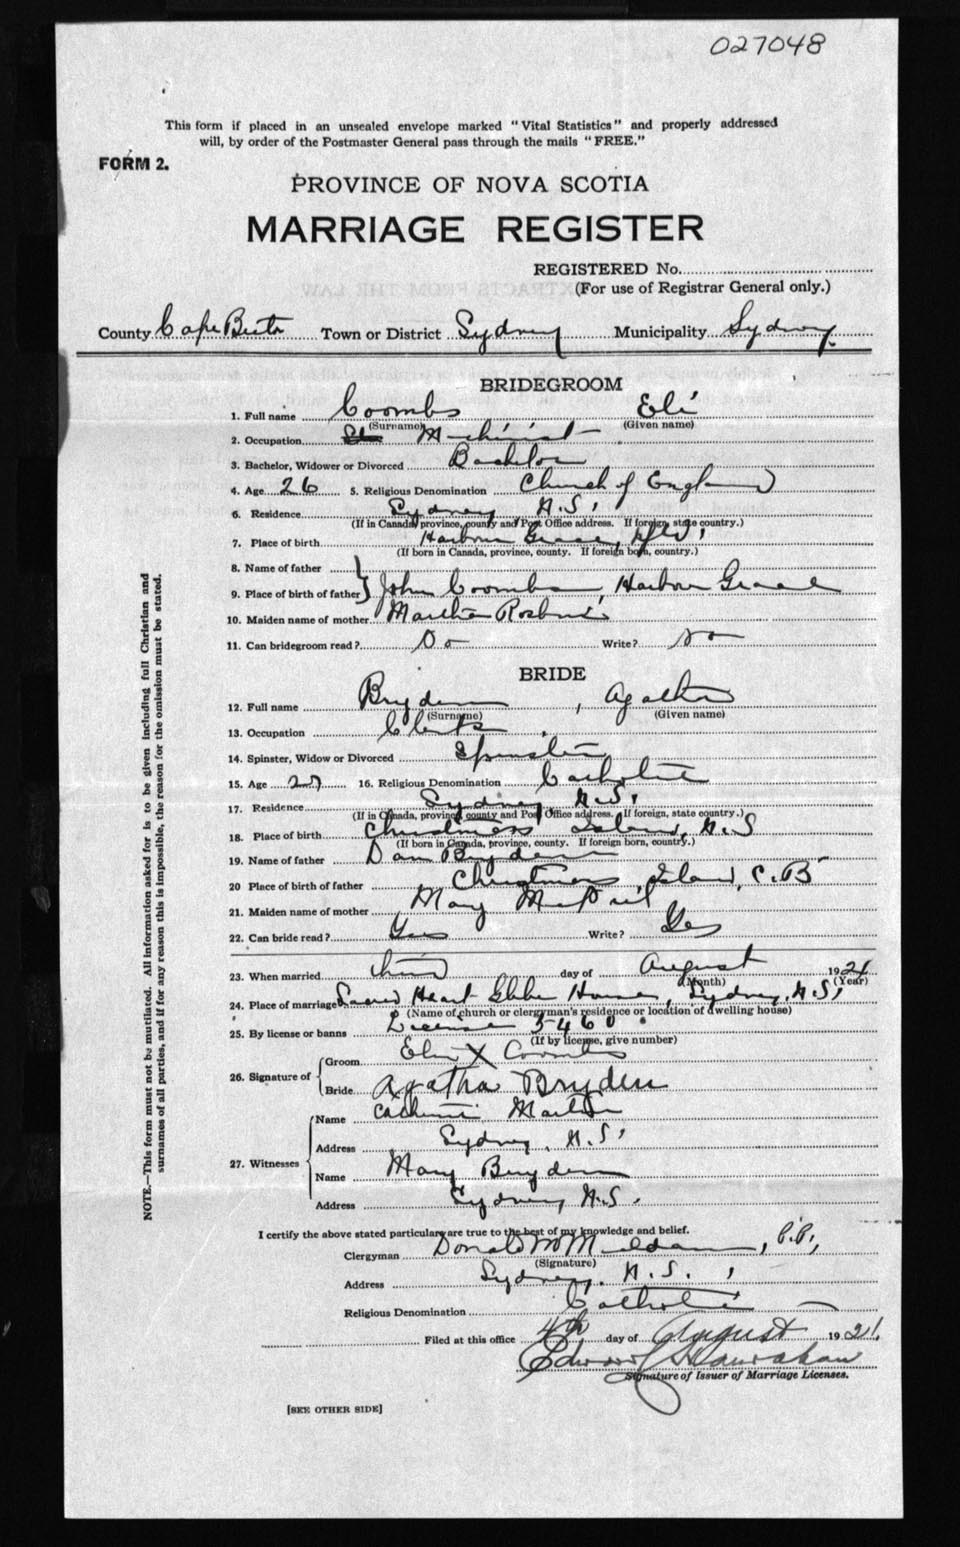 027048
This form if placed in an unsealed envelope marked "Vital Statistics" and properly addressed
will, by order of the Postmaster General pass through the mails "FREE."
FORM 2.
PROVINCE OF NOVA SCOTIA
MARRIAGE REGISTER
REGISTERED No.
(For use of Registrar General only.)
County Cape Breton Town or District Sydney Municipality Sydney.
BRIDEGROOM
1. Full name Coombs Eli
(Surname) (Given name)
2. Occupation Machinist
3. Bachelor, Widower or Divorced Bachelor
4. Age 26 5. Religious Denomination Church of England
6. Residence Sydney N.S.
(If in Canada, province, county and Post Office address. If foreign, state country.)
7. Place of birth Harbour Grace, Nfld,
(If born in Canada, province, county. If foreign born, country.)
8. Name of father
9. Place of birth of father John Coombs, Harbour Grace
10. Maiden name of mother Martha
11. Can bridegroom read? No Write? No
BRIDE
12. Full name Bryden, Agatha
(Surname) (Given name)
13. Occupation Clerk
14. Spinster, Widow or Divorced Spinster
15. Age 27 16. Religious Denomination Catholic
17. Residence Sydney N.S.
(If in Canada, province, county and Post Office address. If foreign, state country.)
18. Place of birth Christmas Island, N.S
(If born in Canada, province, county. If foreign born, country.)
19. Name of father Dan Bryden
20 Place of birth of father Christmas Island, C.B
21. Maiden name of mother Mary McNeil
22. Can bride read? Yes Write? Yes
23. When married third day of August 1921
(Month) (Year)
24. Place of marriage Sacred Heart Glebe House, Sydney, N.S,
(Name of church or clergyman's residence or location of dwelling house)
25. By license or banns License 5460
(If by license, give number)
26. Signature of Groom Eli X Coombs
Bride Agatha Bryden
27. Witnesses Name Catherine Martin
Address Sydney, N.S.
Name Mary Bryden
Address Sydney, N.S.
I certify the above stated particulars are true to the best of my knowledge and belief.
Clergyman Donald M, P.P.,
(Signature)
Address Sydney, N.S.,
Religious Denomination Catholic
Filed at this office 4th day of August 1921.
Edward
Signature of Issuer of Marriage Licenses.
[SEE OTHER SIDE]
NOTE.—This form must not be mutilated. All information asked for is to be given including full Christian and
surnames of all parties, and if for any reason this is impossible, the reason for the omission must be stated.